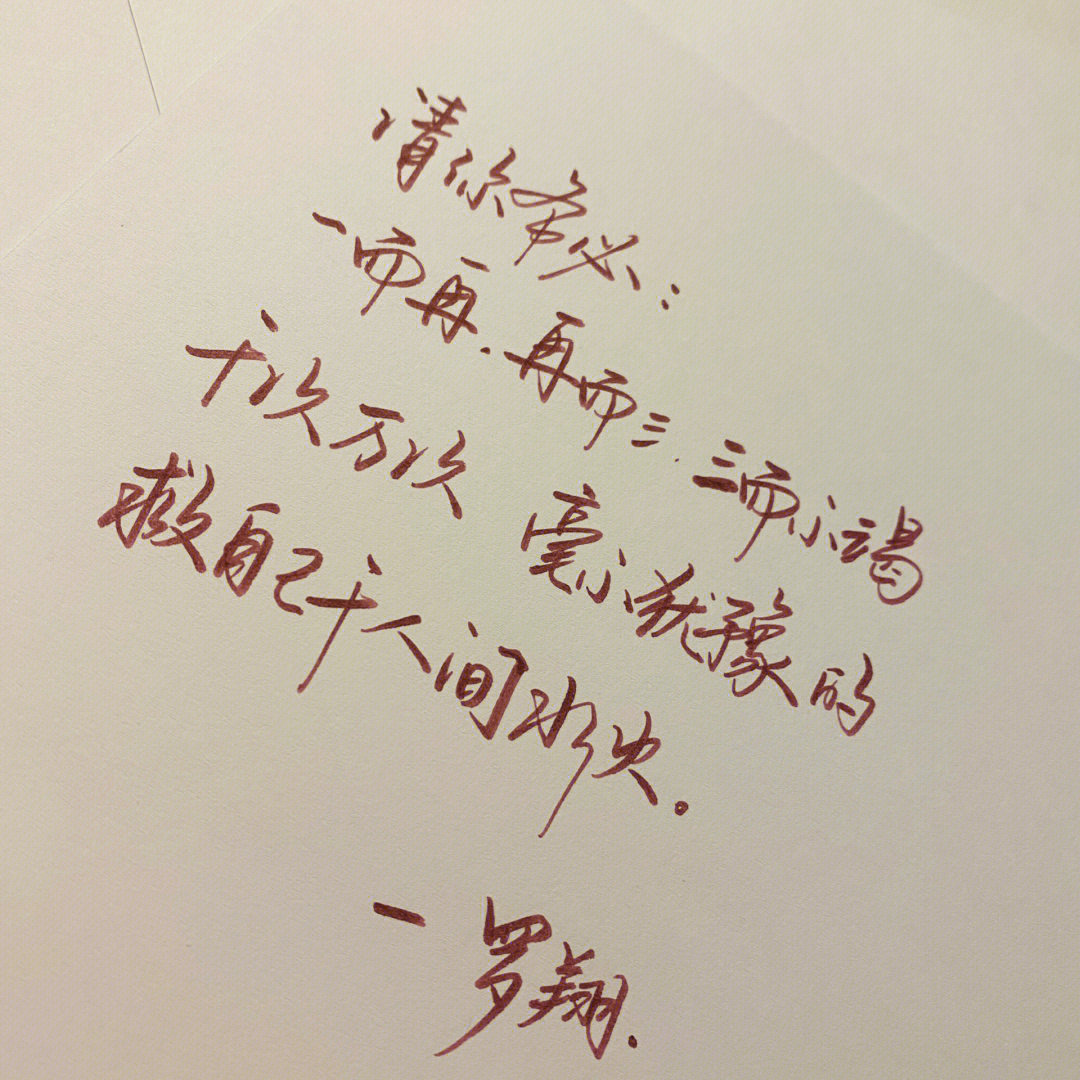 请你务必：
一而再.再而三.三而不竭
千次万次 毫不犹豫的
救自己于人间水火.
—罗翔.